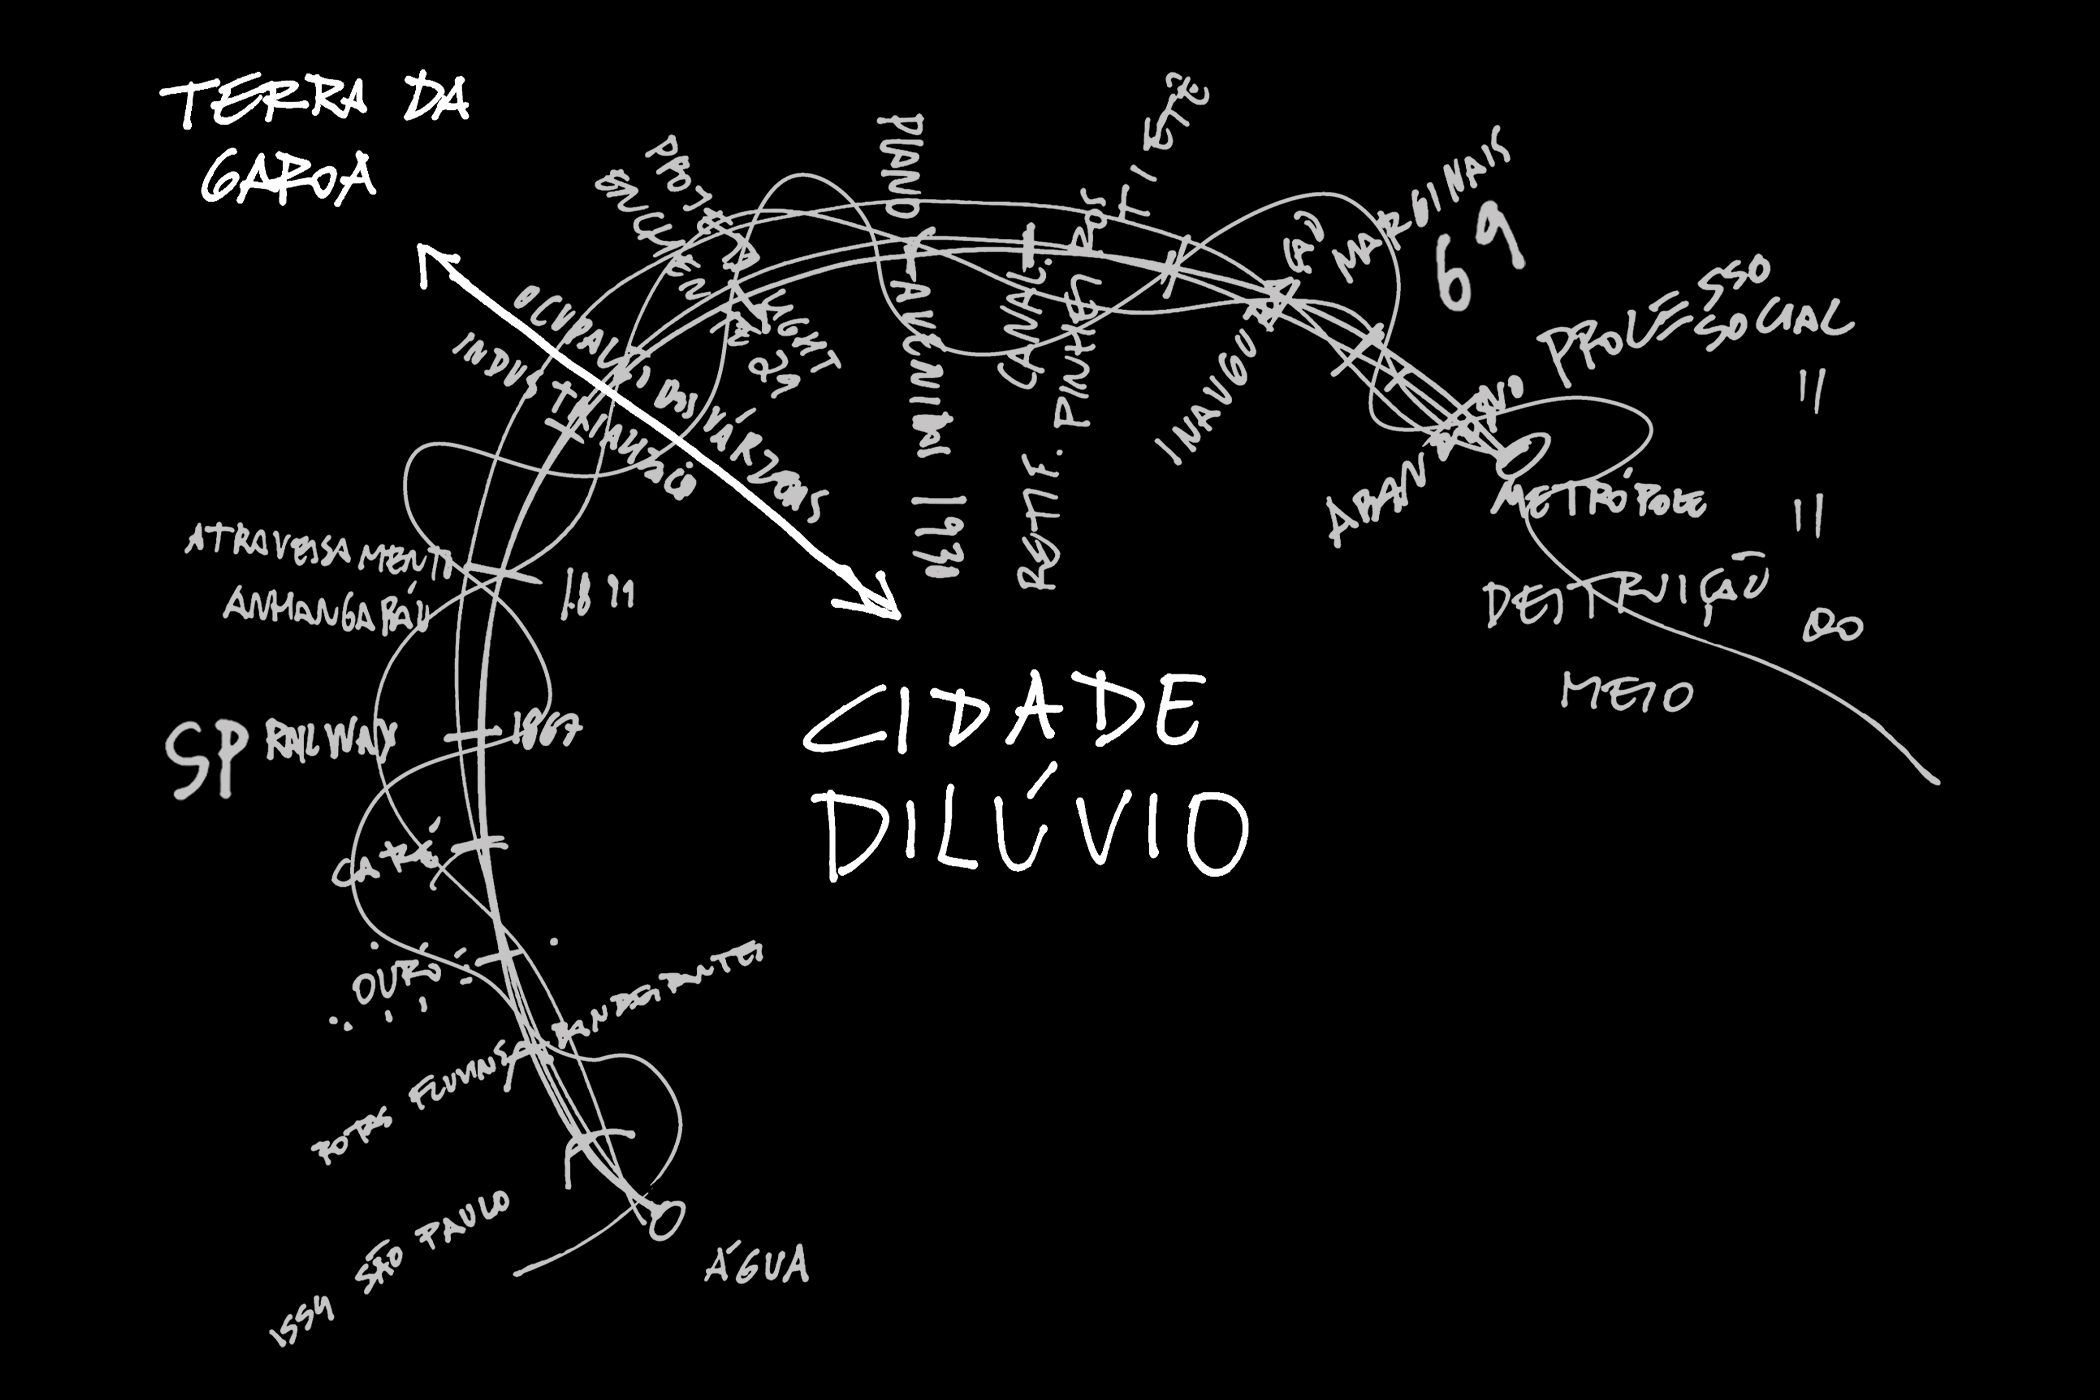 TERRA DA
GAROA
PROJETO LIGHT
ENCHENTE 29
PLANO
AVENIDAS 1930
CANAL.
RETIF. PINHEI ROS
TIETÊ
INAUGURAÇÃO
MARGINAIS
69
OCUPAÇÃO DAS VÁRZEAS
INDUSTRIALIZAÇÃO
ABANDONO
PROCESSO
SOCIAL
=
METRÓPOLE
=
DESTRUIÇÃO
DO
MEIO
ATRAVESSAMENTO
ANHANGABAÚ
SP RAILWAY
1867
CIDADE
DILÚVIO
CAFÉ
OURO
ROTAS FLUVIAIS BANDEIRANTES
1554 SÃO PAULO
ÁGUA